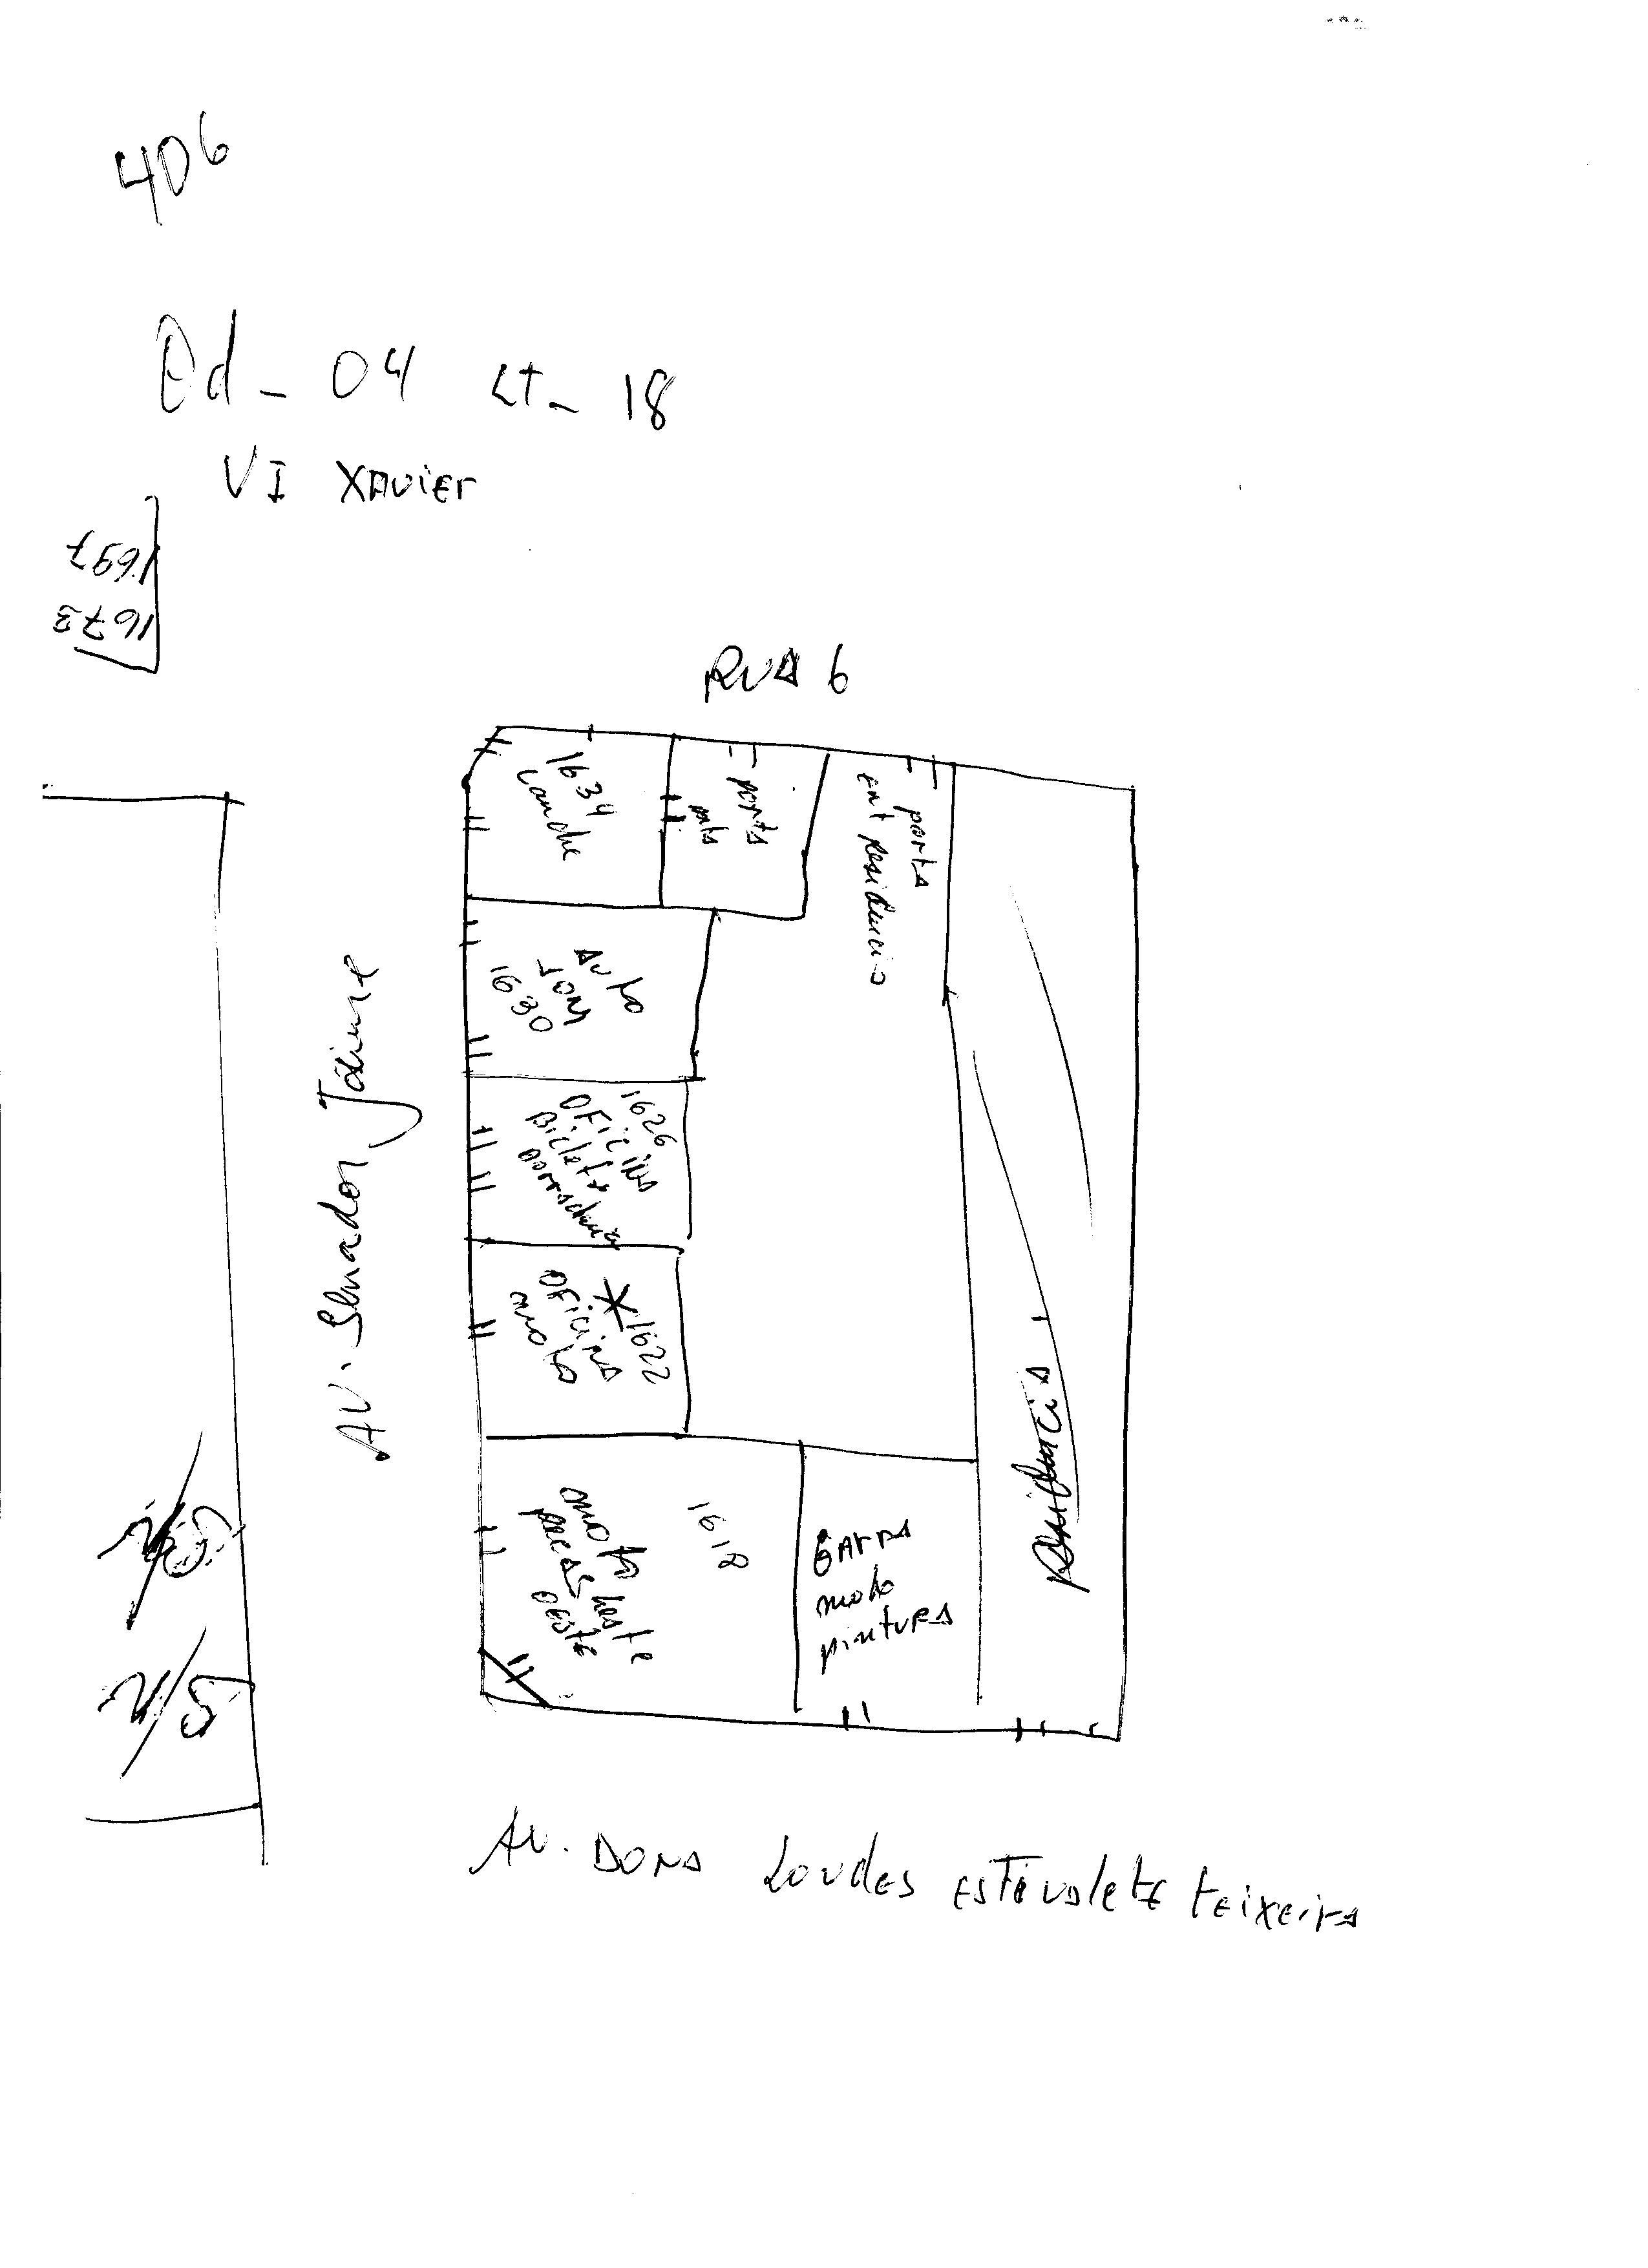 406
Qd - 04 Lt - 18
VI XAVIEr
1697
1673
RUA 6
1634
Lanche
porta
porta
ent Residencia
AUto
SOM
1630
AV. Senador Jaime
1626
OFICINA
Bicleta
borracharia
1622
OFICINA
moto
moto
pecas Leste
OESTE
1618
GArrA
moto
pintura
Residencia
AV. DONA LouDES ESTIvalete teixeira